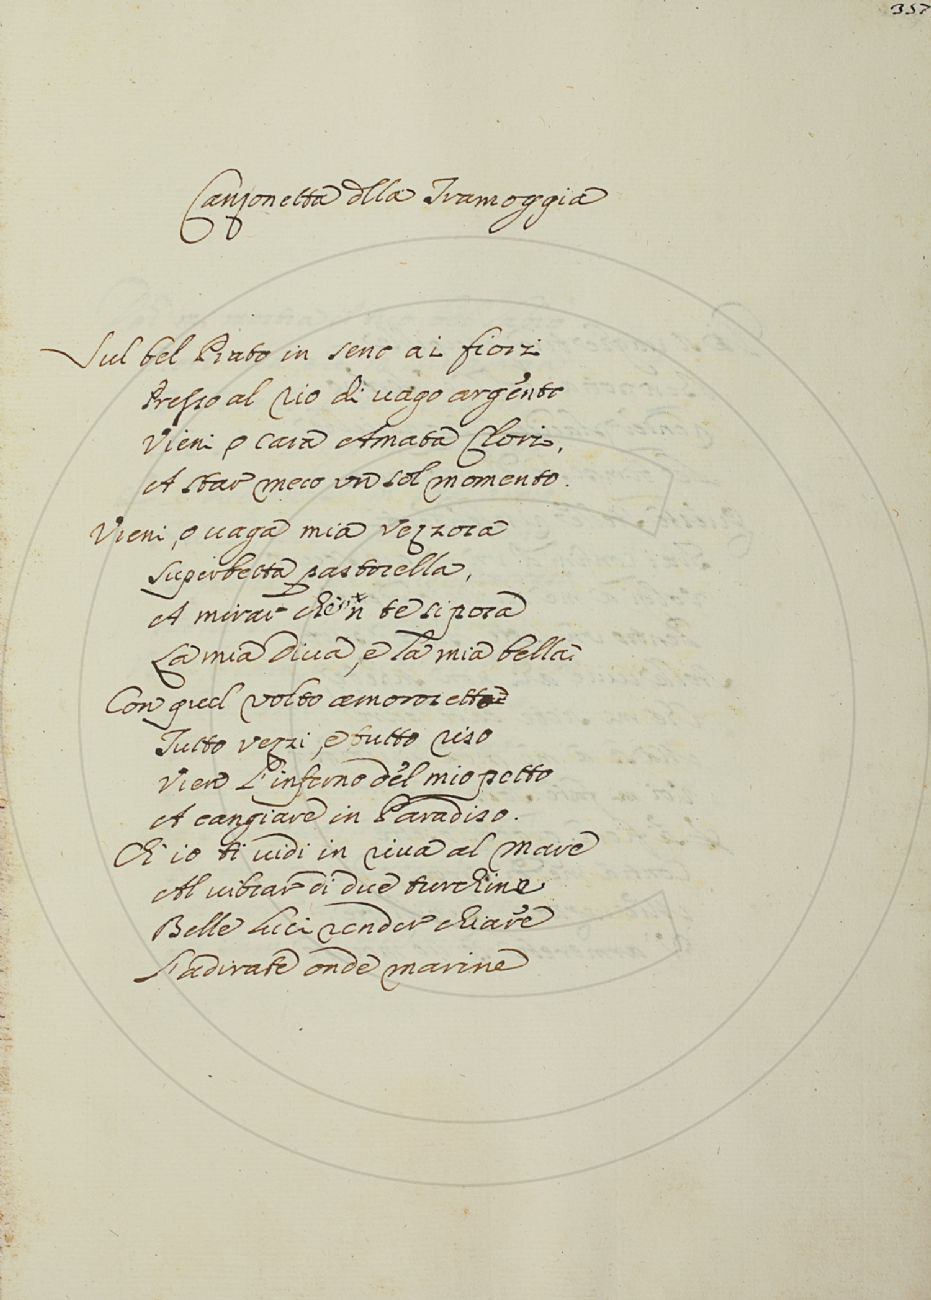 357
Canzonetta dlla Tramoggia
Sul bel Prato in seno ai fiori
Presso al rio di uago argento
Vieni o cara Amata Clori,
A star meco un sol momento.
Vieni, o uaga mia vezzosa
Superbetta pastorella,
A mirar che in te si posa
La mia Diua, e la mia bella.
Con quel volto amorosetto
Tutto vezzi, e tutto riso
Vien l'inferno del mio petto
A cangiare in Paradiso.
Ch'io ti uidi in riua al mare
Al uibrar di due turchine
Belle luci render chiare
L'adirate onde marine